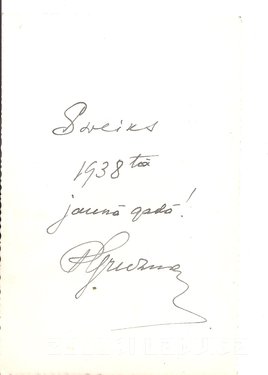 Sveiks
1938 tā
jaunā gadā!